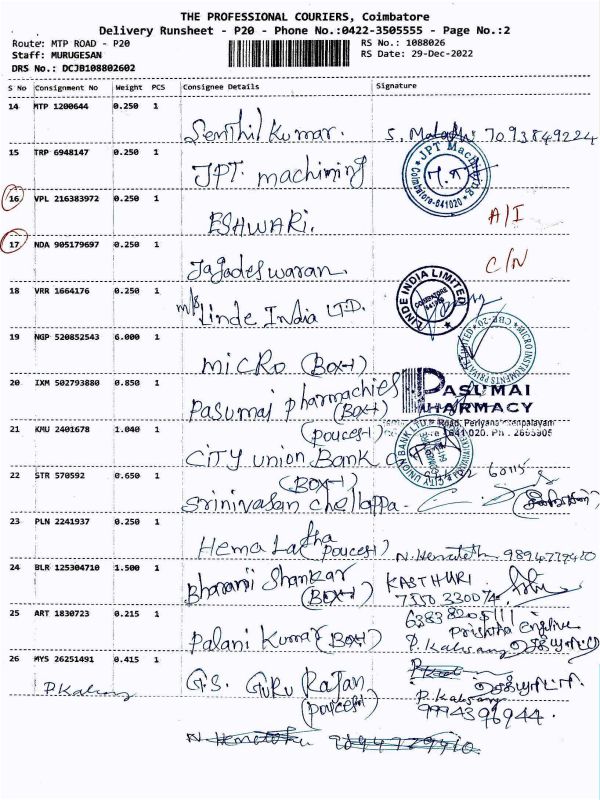 THE PROFESSIONAL COURIERS, Coimbatore
Delivery Runsheet - P20 - Phone No.:0422-3505555 - Page No.:2
Route: MTP ROAD - P20
RS No.: 1088026
Staff: MURUGESAN
RS Date: 29-Dec-2022
DRS No.: DCJB108802602
S No Consignment No Weight PCS Consignee Details Signature
14 MTP 1200644 0.250 1
Senthil Kumar. 7093849224
15 TRP 6948147 0.250 1
JPT. machining
JPT Machining
Coimbatore-641020
16 VPL 216383972 0.250 1
ESHWARI. A/I
17 NDA 905179697 0.250 1
Jagadeswaran C/N
18 VRR 1664176 0.250 1
M/s Linde India LTD.
LINDE INDIA LIMITED
COIMBATORE
19 NGP 520852543 6.000 1
MICRO (BOX-1)
MICRO INSTRUMENTS PRIVATE LIMITED
CBE-20
20 IXM 502793880 0.850 1
Pasumai Pharmachies (BOX-1)
PASUMAI
PHARMACY
Road, Periyanaickenpalayam
641020. Ph : 2693905
21 KMU 2401678 1.040 1
(pouces-1)
CITY union Bank
CITY UNION BANK LTD
22 STR 570592 0.650 1
(BOX-1)
Srinivasan chellappa-
23 PLN 2241937 0.250 1
Hema Latha (pouces-1)
24 BLR 125304710 1.500 1
Bharani Shankar (BOX-1) KASTHURI
25 ART 1830723 0.215 1
Palani Kumar (BOX-1) P. Kalsang
26 MYS 26251491 0.415 1
P.Kalsang
G.S. GURU RAJAN (pouces-1)
P. Kalsang
9994396944.